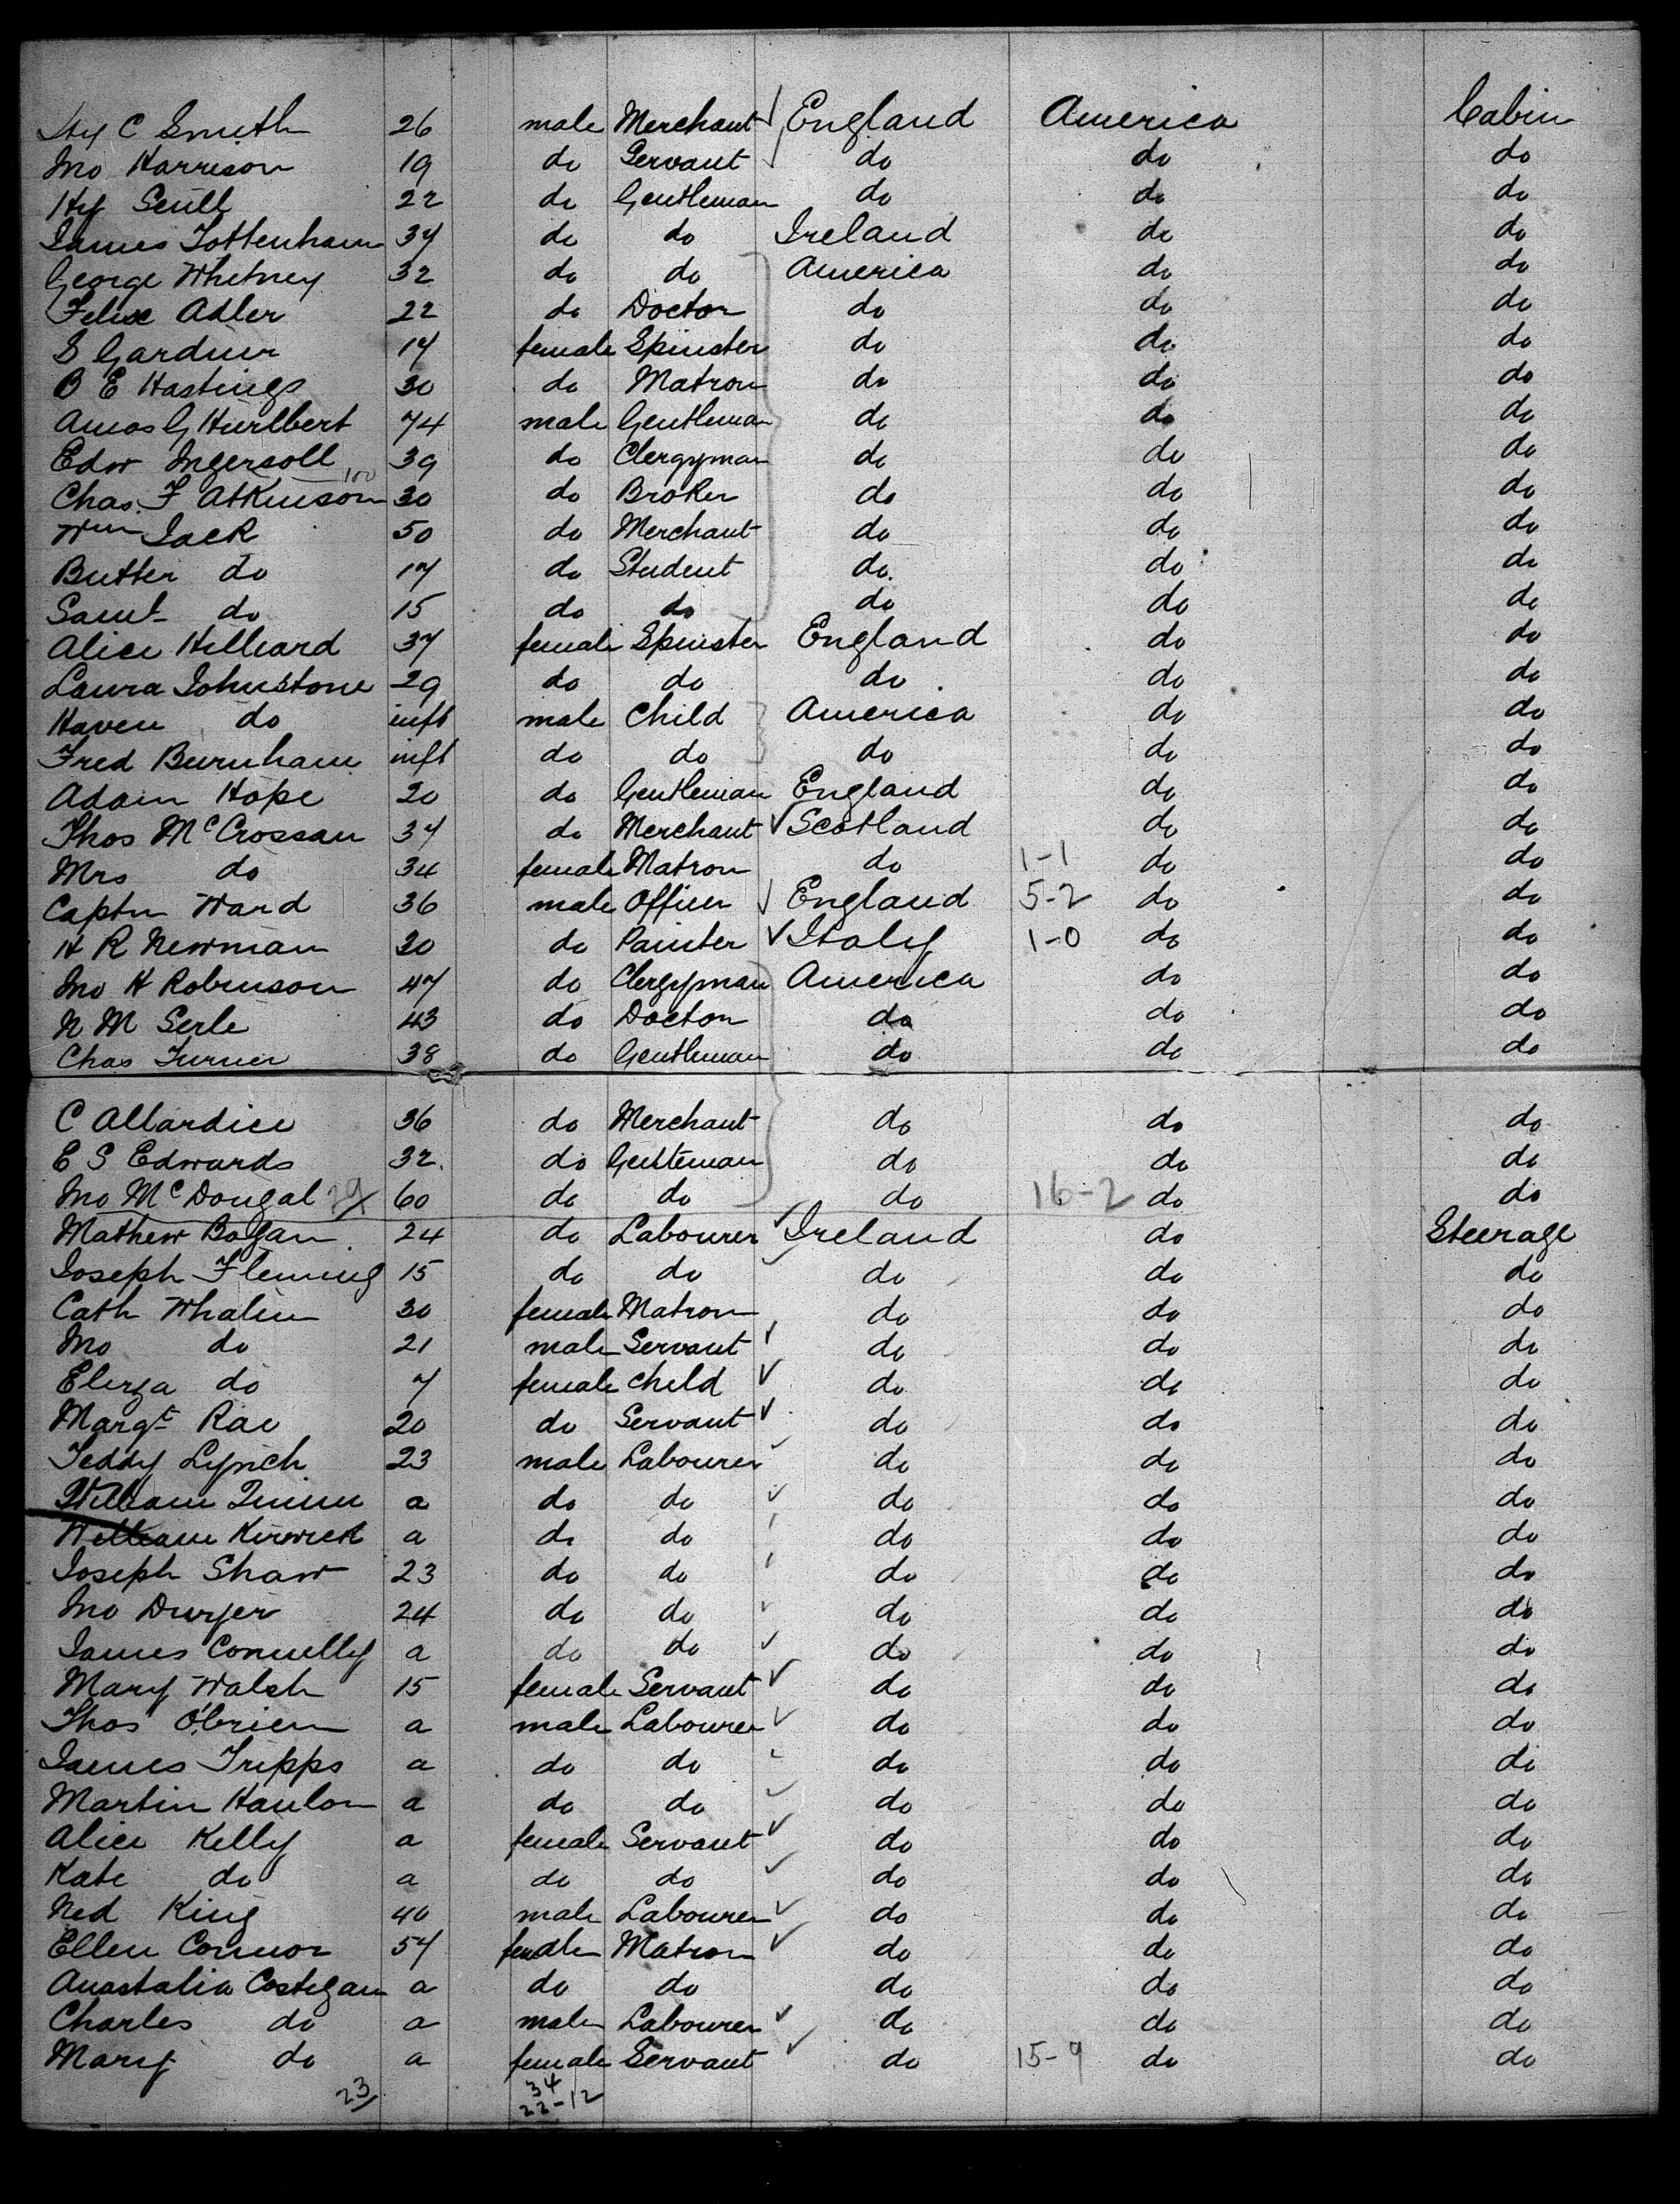 Hy C Smith 26 male Merchant England America Cabin
Jno Harrison 19 do Servant do do do
Hy Scull 22 do Gentleman do do do
James Tottenham 34 do do Ireland do do
George Whitney 32 do do America do do
Felix Adler 22 do Doctor do do do
S Gardner 17 female Spinster do do do
B E Hastings 30 do Matron do do do
Amos G Hurlbert 74 male Gentleman do do do
Edw Ingersoll 39 do Clergyman do do do
100
Chas. F Atkinson 30 do Broker do do do
Wm Jack 50 do Merchant do do do
Butter do 17 do Student do. do do
Saml do 15 do do do do do
Alice Hilliard 37 female Spinster England do do
Laura Johnstone 29 do do do do do
Haven do inft male Child America do do
Fred Burnham inft do do do do do
Adam Hope 20 do Gentleman England do do
Thos McCrossan 37 do Merchant Scotland do do
Mrs do 34 female Matron do 1-1 do do
Captn Ward 36 male Officer England 5-2 do do
H R Newman 30 do Painter Italy 1-0 do do
Jno H Robinson 47 do Clergyman America do do
N M Serle 43 do Doctor do do do
Chas Turner 38 do Gentleman do do do
C Allardice 36 do Merchant do do do
E S Edwards 32. do Gentleman do do do
Jno McDougal 29 60 do do do 16-2 do do
Mathew Bogan 24 do Labourer Ireland do Steerage
Joseph Fleming 15 do do do do do
Cath Whalen 30 female Matron do do do
Jno do 21 male Servant do do do
Eliza do 7 female child do do do
Margt Rae 20 do Servant do do do
Teddy Lynch 23 male Labourer do do do
William Quinn a do do do do do
William Kirwick a do do do do do
Joseph Shaw 23 do do do do do
Jno Dwyer 24 do do do do do
James Connelly a do do do do do
Mary Walsh 15 female Servant do do do
Thos O'brien a male Labourer do do do
James Tripps a do do do do do
Martin Hanlon a do do do do do
Alice Kelly a female Servant do do do
Kate do a do do do do do
Ned King 40 male Labourer do do do
Ellen Connor 54 female Matron do do do
Anastalia Costigan a do do do do do
Charles do a male Labourer do do do
Mary do a female Servant do 15-9 do do
23 34
22-12